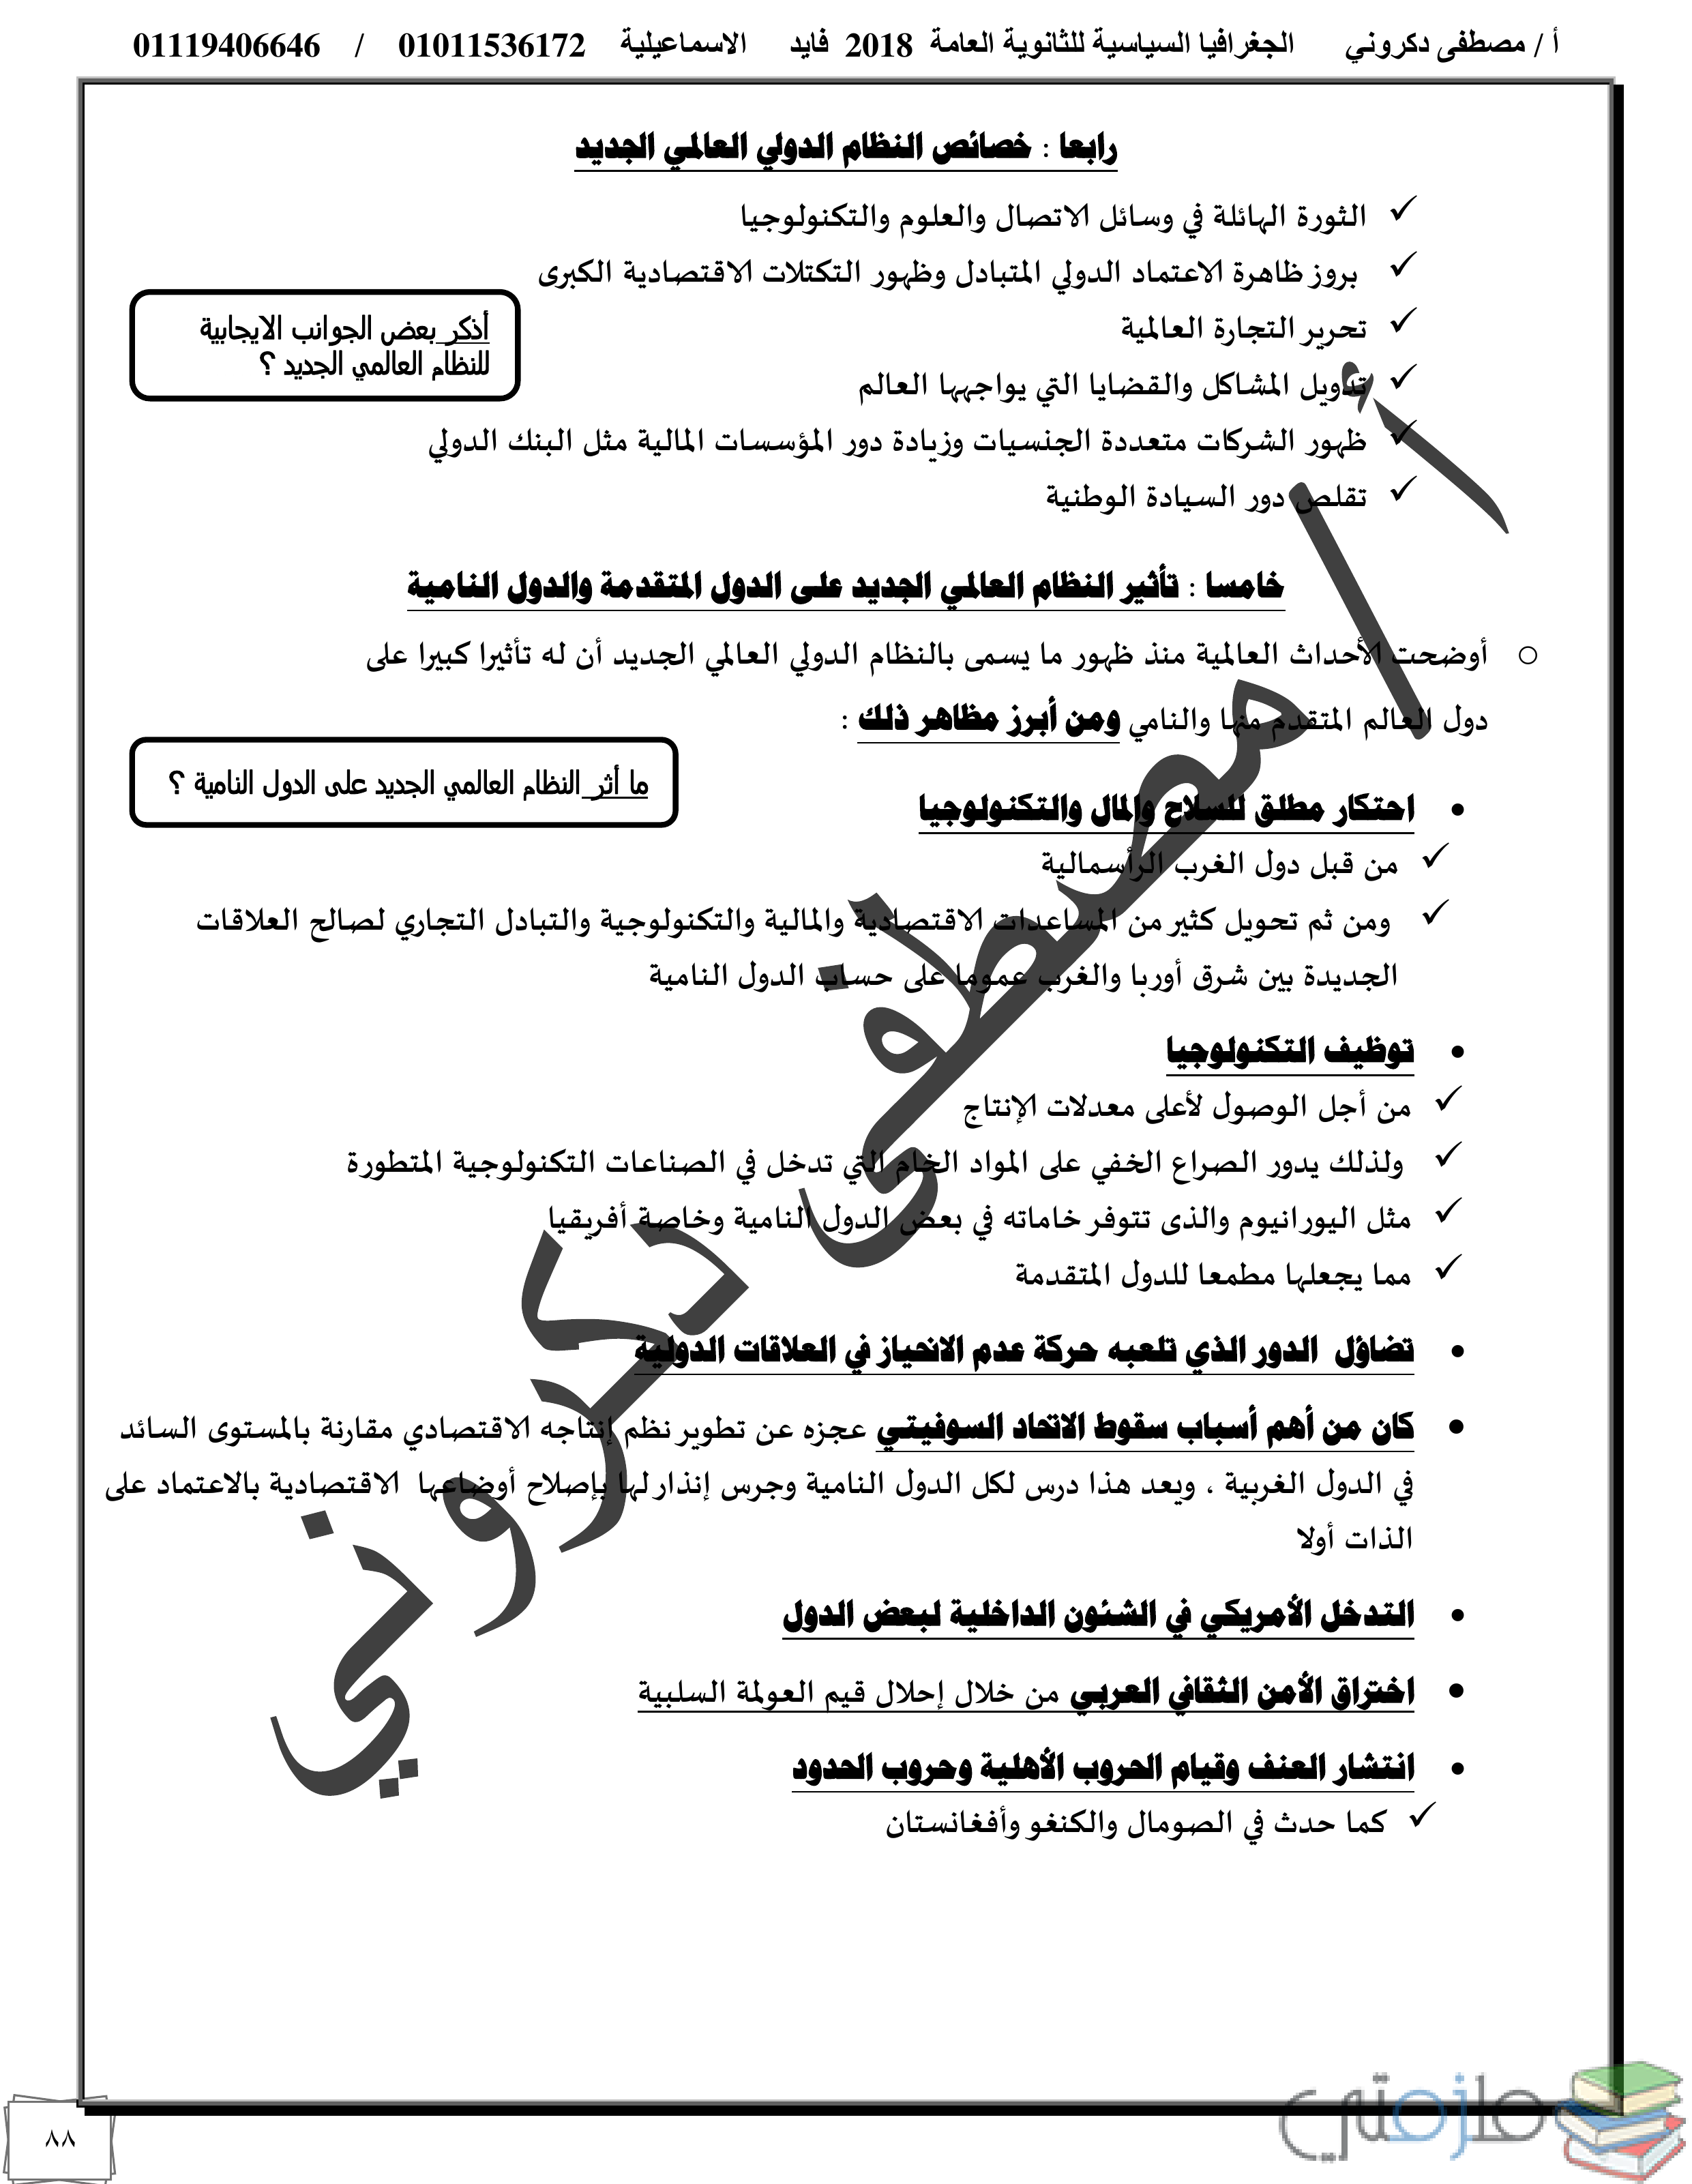 أ / مصطفى دكروني الجغرافيا السياسية للثانوية العامة 2018 فايد الاسماعيلية 01011536172 / 01119406646
رابعا : خصائص النظام الدولي العالمي الجديد
✓ الثورة الهائلة في وسائل الاتصال والعلوم والتكنولوجيا
✓ بروز ظاهرة الاعتماد الدولي المتبادل وظهور التكتلات الاقتصادية الكبرى
أذكر بعض الجوانب الايجابية
للنظام العالمي الجديد ؟
✓ تحرير التجارة العالمية
✓ تدويل المشاكل والقضايا التي يواجهها العالم
✓ ظهور الشركات متعددة الجنسيات وزيادة دور المؤسسات المالية مثل البنك الدولي
✓ تقلص دور السيادة الوطنية
خامسا : تأثير النظام العالمي الجديد على الدول المتقدمة والدول النامية
○ أوضحت الأحداث العالمية منذ ظهور ما يسمى بالنظام الدولي العالمي الجديد أن له تأثيرا كبيرا على
دول العالم المتقدم منها والنامي ومن أبرز مظاهر ذلك :
ما أثر النظام العالمي الجديد على الدول النامية ؟
• احتكار مطلق للسلاح والمال والتكنولوجيا
✓ من قبل دول الغرب الرأسمالية
✓ ومن ثم تحويل كثير من المساعدات الاقتصادية والمالية والتكنولوجية والتبادل التجاري لصالح العلاقات
الجديدة بين شرق أوربا والغرب عموما على حساب الدول النامية
• توظيف التكنولوجيا
✓ من أجل الوصول لأعلى معدلات الإنتاج
✓ ولذلك يدور الصراع الخفي على المواد الخام التي تدخل في الصناعات التكنولوجية المتطورة
✓ مثل اليورانيوم والذى تتوفر خاماته في بعض الدول النامية وخاصة أفريقيا
✓ مما يجعلها مطمعا للدول المتقدمة
• تضاؤل الدور الذي تلعبه حركة عدم الانحياز في العلاقات الدولية
• كان من أهم أسباب سقوط الاتحاد السوفيتي عجزه عن تطوير نظم إنتاجه الاقتصادي مقارنة بالمستوى السائد
في الدول الغربية ، ويعد هذا درس لكل الدول النامية وجرس إنذار لها بإصلاح أوضاعها الاقتصادية بالاعتماد على
الذات أولا
• التدخل الأمريكي في الشئون الداخلية لبعض الدول
• اختراق الأمن الثقافي العربي من خلال إحلال قيم العولمة السلبية
• انتشار العنف وقيام الحروب الأهلية وحروب الحدود
✓ كما حدث في الصومال والكنغو وأفغانستان
أ / مصطفى دكروني
ملزمتي
٨٨